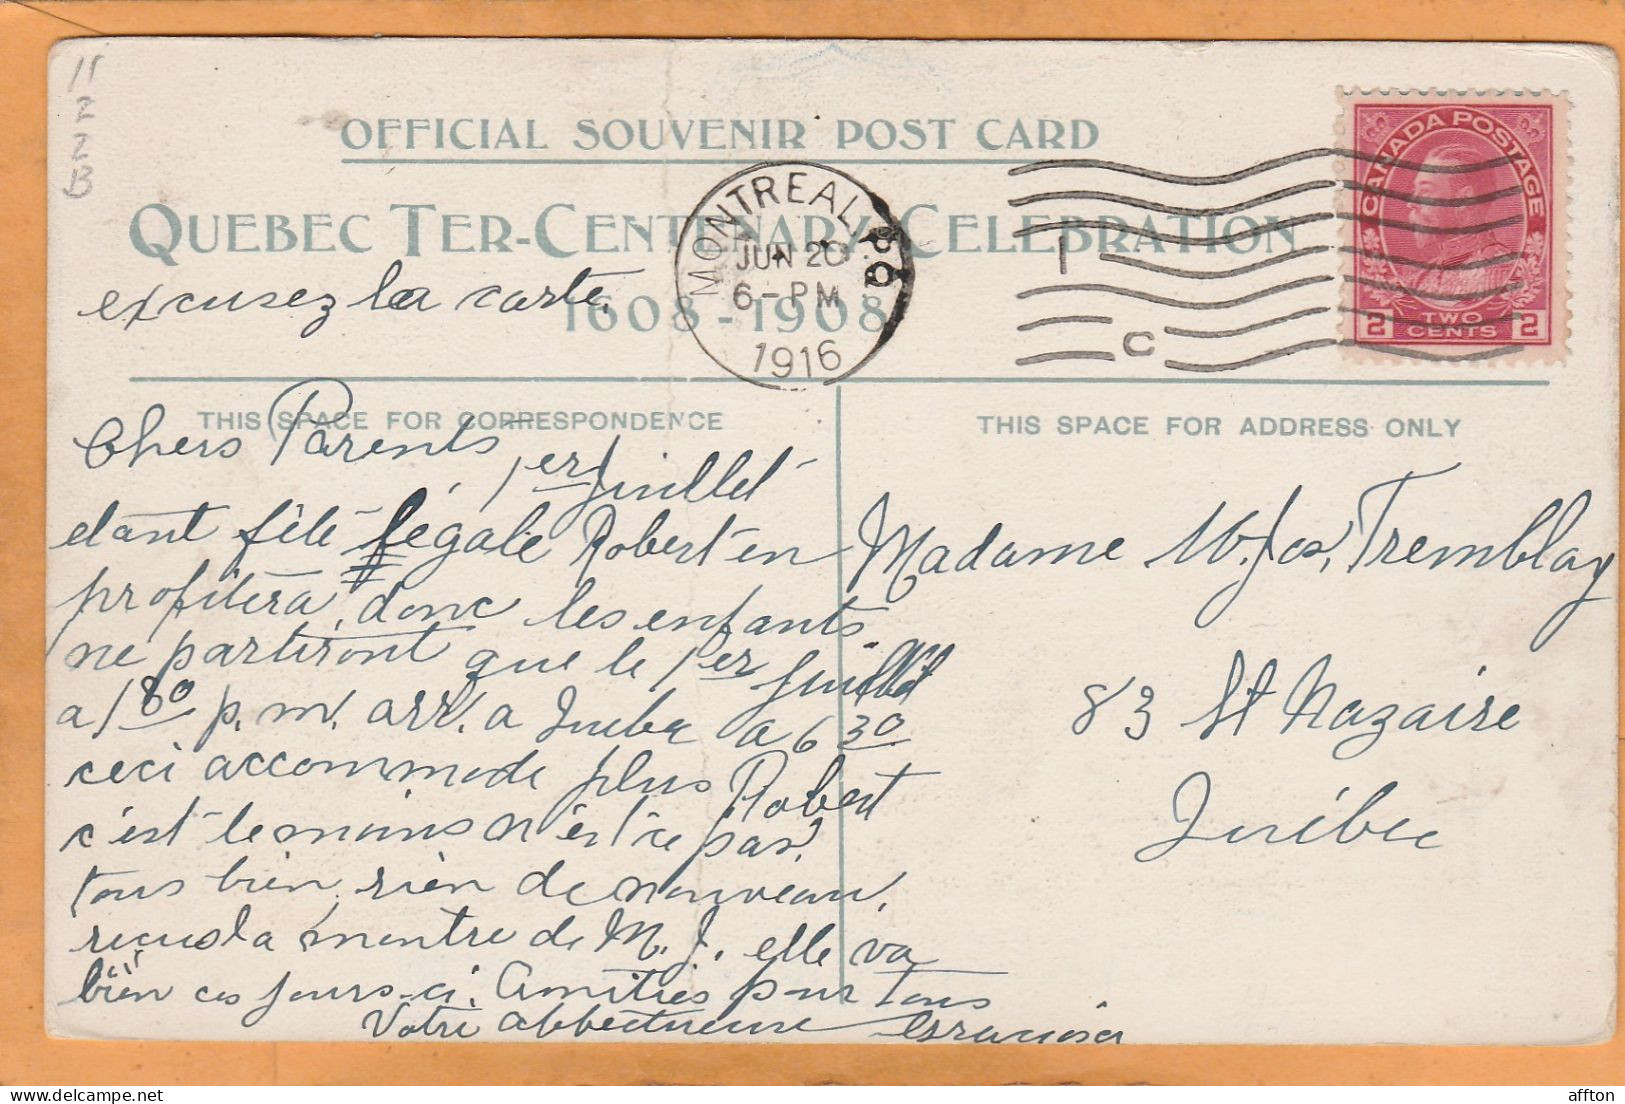 11
2
2
B
OFFICIAL SOUVENIR POST CARD
QUEBEC TER-CENTENARY CELEBRATION
1608-1908
excusez la carte.
MONTREAL P.Q.
JUN 20
6-PM
1916
1 C
CANADA POSTAGE
2 TWO CENTS 2
THIS SPACE FOR CORRESPONDENCE
THIS SPACE FOR ADDRESS ONLY
Chers Parents
1er Juillet
etant fête légale Robert en
profitera, donc les enfants
ne partiront que le 1er Juillet
a 1 30 p.m. arr. a Quebec a 6 30
ceci accommode plus Robert
c'est le moins n'est ce pas.
tous bien, rien de nouveau,
reçus la montre de M. J. elle va
bien ces jours-ci. Amitiés pour tous
Votre affectueuse
Madame W. Jos. Tremblay
83 St Nazaire
Québec
affton